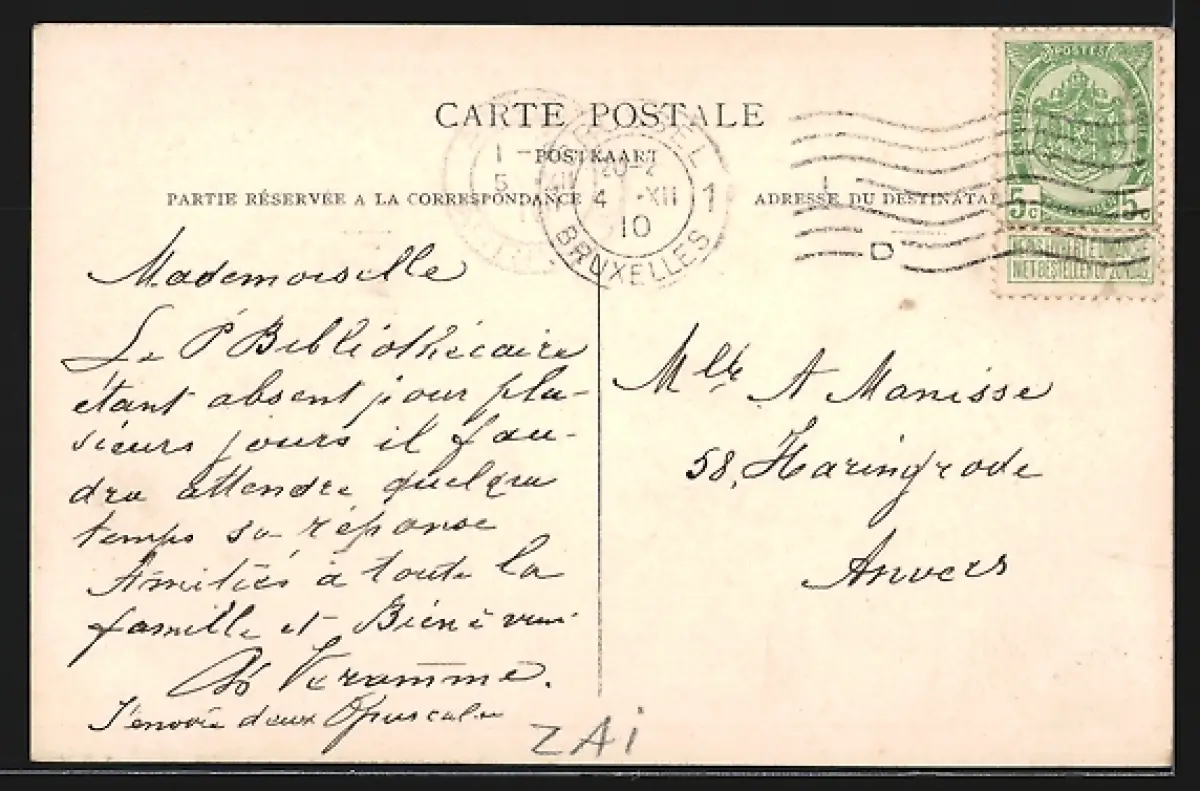 CARTE POSTALE
POSTKAART
PARTIE RÉSERVÉE A LA CORRESPONDANCE
ADRESSE DU DESTINATAI
1 BRUXELLES
4 XII
10
POSTES
5c 5c
NIET BESTELLEN OP ZONDAG
Mademoiselle
Le P Bibliothécaire
étant absent pour plu-
sieurs jours il fau-
dra attendre quelque
temps sa réponse
Amitiés à toute la
famille et Bien à vous
Veramme.
J'envoie deux Opuscules
Mlle A Manisse
58, Haringrode
Anvers
ZAi